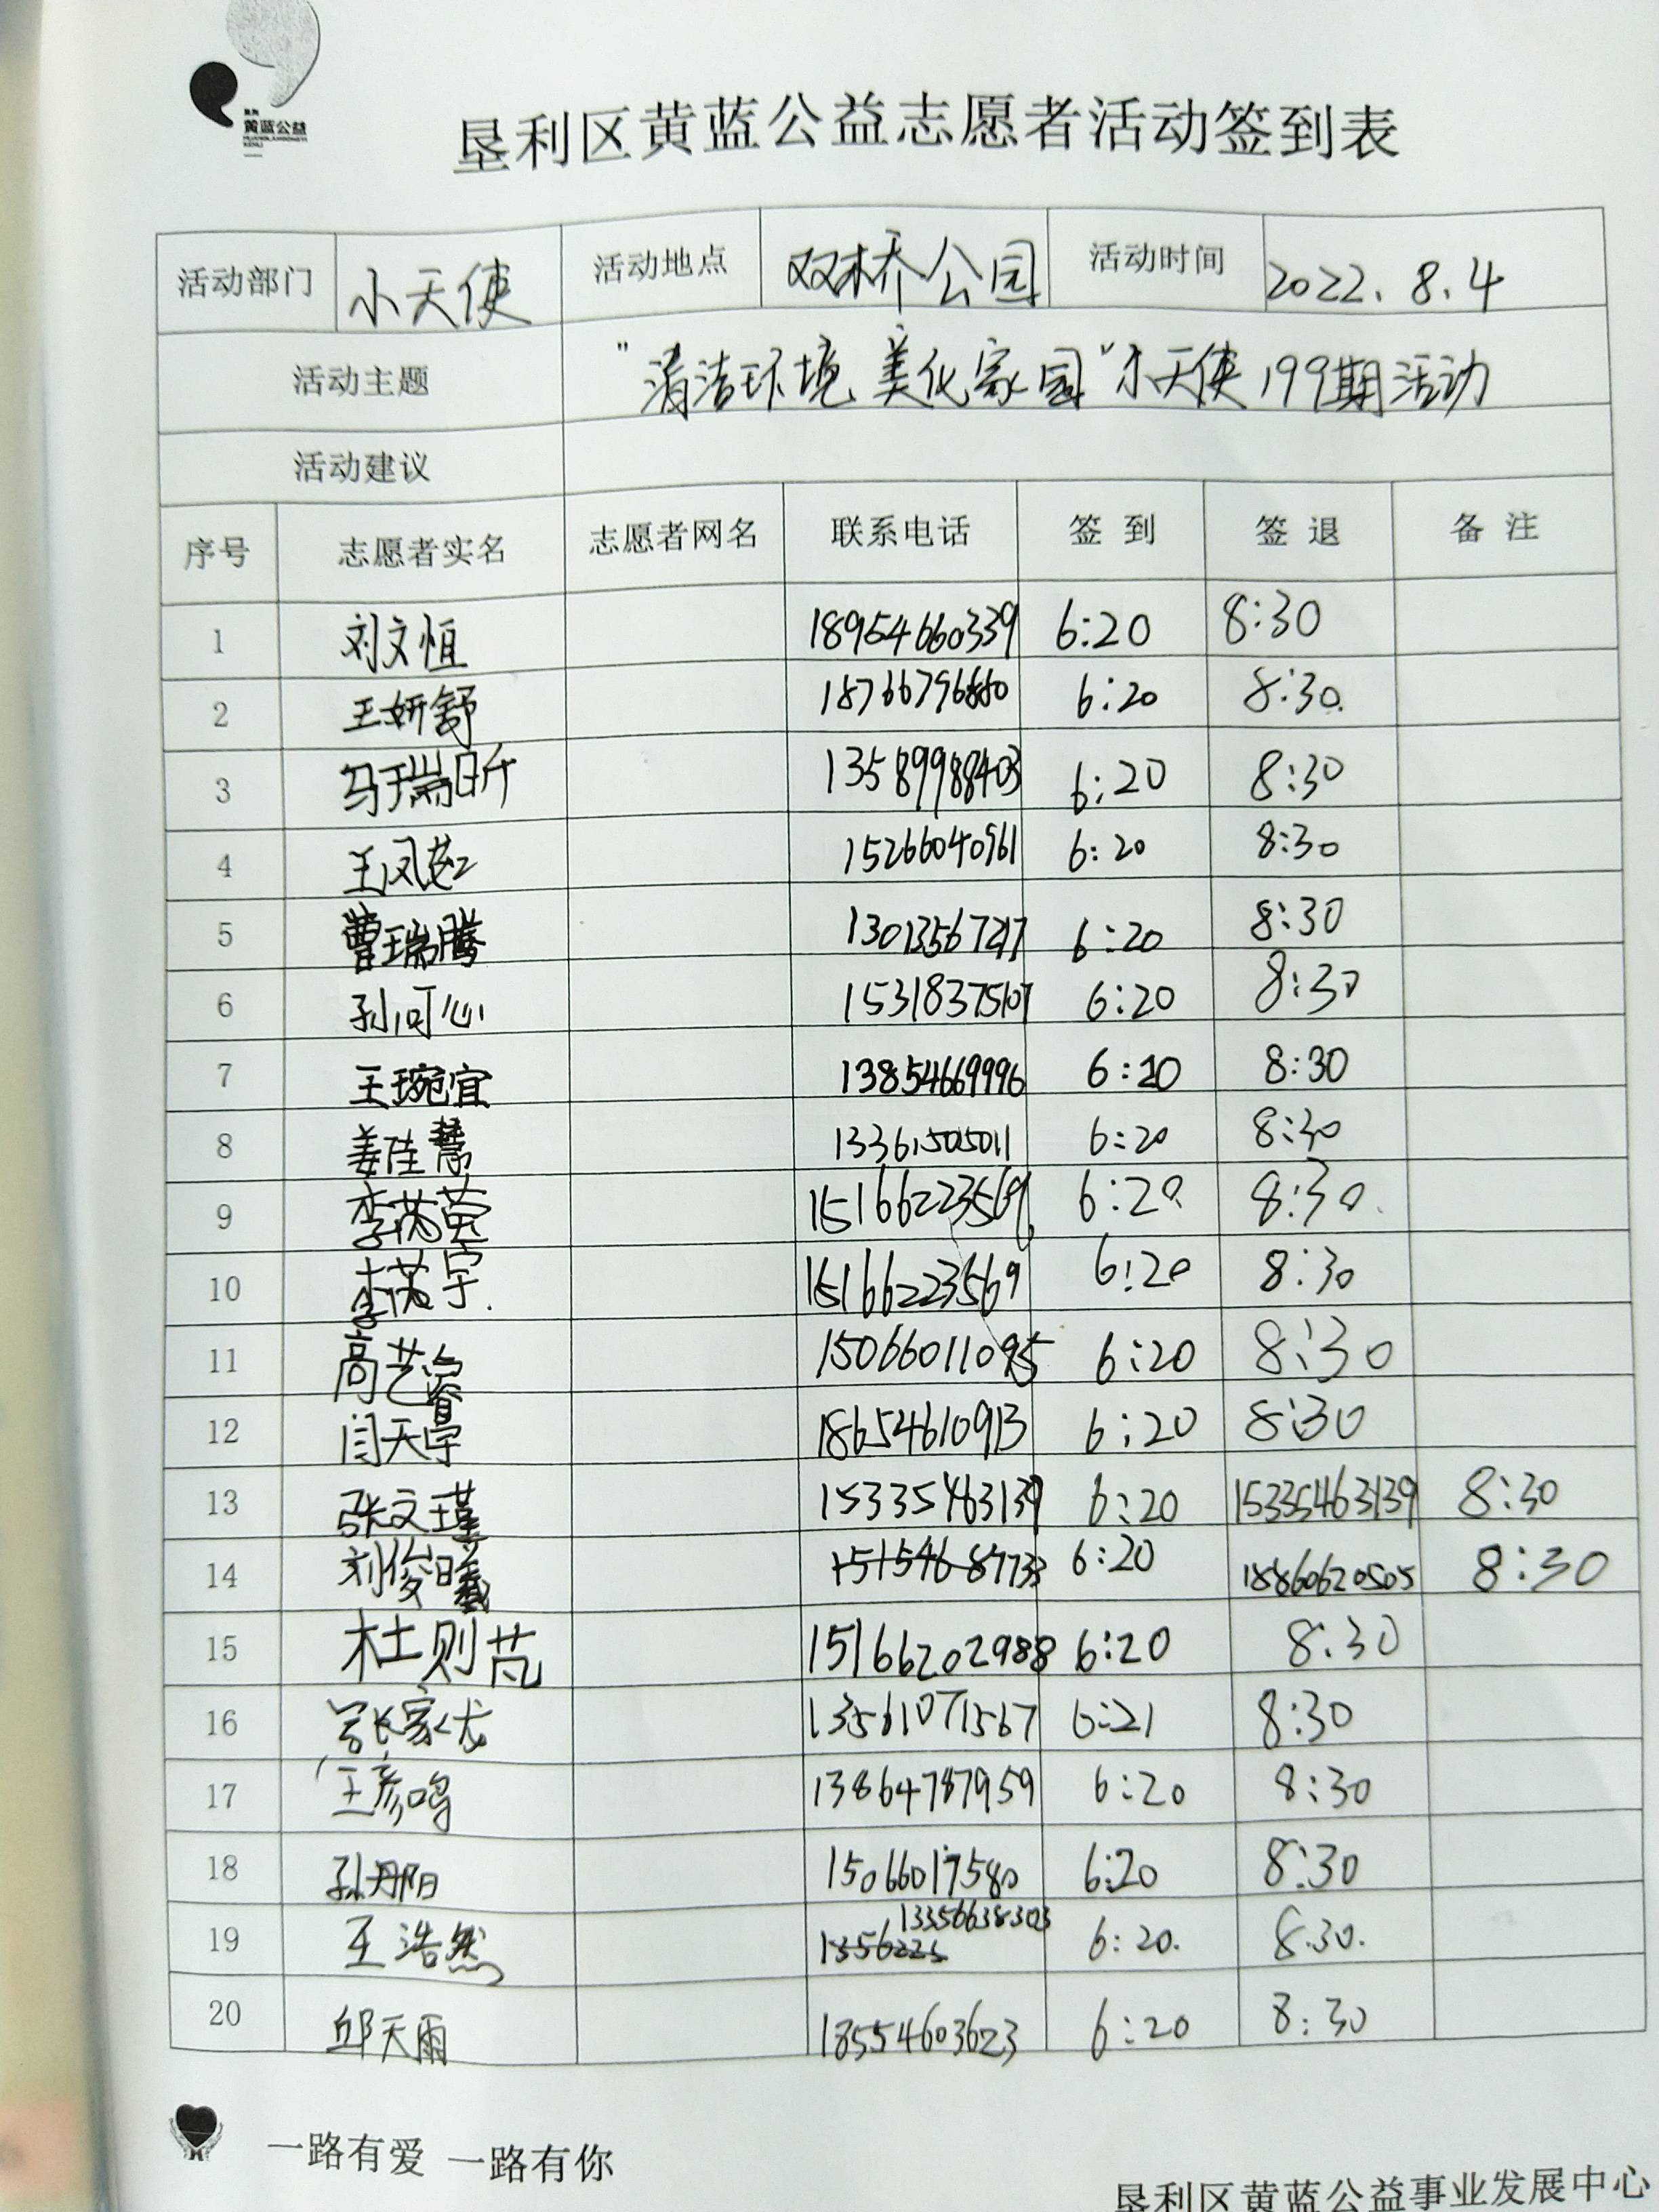 黄蓝公益
垦利区黄蓝公益志愿者活动签到表
活动部门 小天使 活动地点 双桥公园 活动时间 2022.8.4
活动主题 "清洁环境 美化家园"小天使199期活动
活动建议
序号 志愿者实名 志愿者网名 联系电话 签 到 签 退 备 注
1 刘文恒 18954660339 6:20 8:30
2 王妍舒 18766796880 6:20 8:30.
3 马瑞昕 13589988403 6:20 8:30
4 王凤茹 15266040961 6:20 8:30
5 曹瑞腾 13013567217 6:20 8:30
6 孙可心 15318375107 6:20 8:30
7 王琬宜 13854669996 6:20 8:30
8 姜佳慧 13361505011 6:20 8:30
9 李芮萱 15166223569 6:20 8:30.
10 李芮宇. 15166223569 6:20 8:30
11 高艺 15066011095 6:20 8:30
12 闫天宇 18654610913 6:20 8:30
13 张文瑾 15335463139 6:20 15335463139 8:30
14 刘俊曦 15154687733 6:20 18860620505 8:30
15 杜则芃 15166202988 6:20 8:30
16 张家优 13561071567 6:21 8:30
17 王彦鸣 13864787959 6:20 8:30
18 孙丹阳 15066017580 6:20 8:30
19 王浩然 13356638303 6:20. 8.30.
20 邱天雨 18554603623 6:20 8:30
一路有爱 一路有你
垦利区黄蓝公益事业发展中心